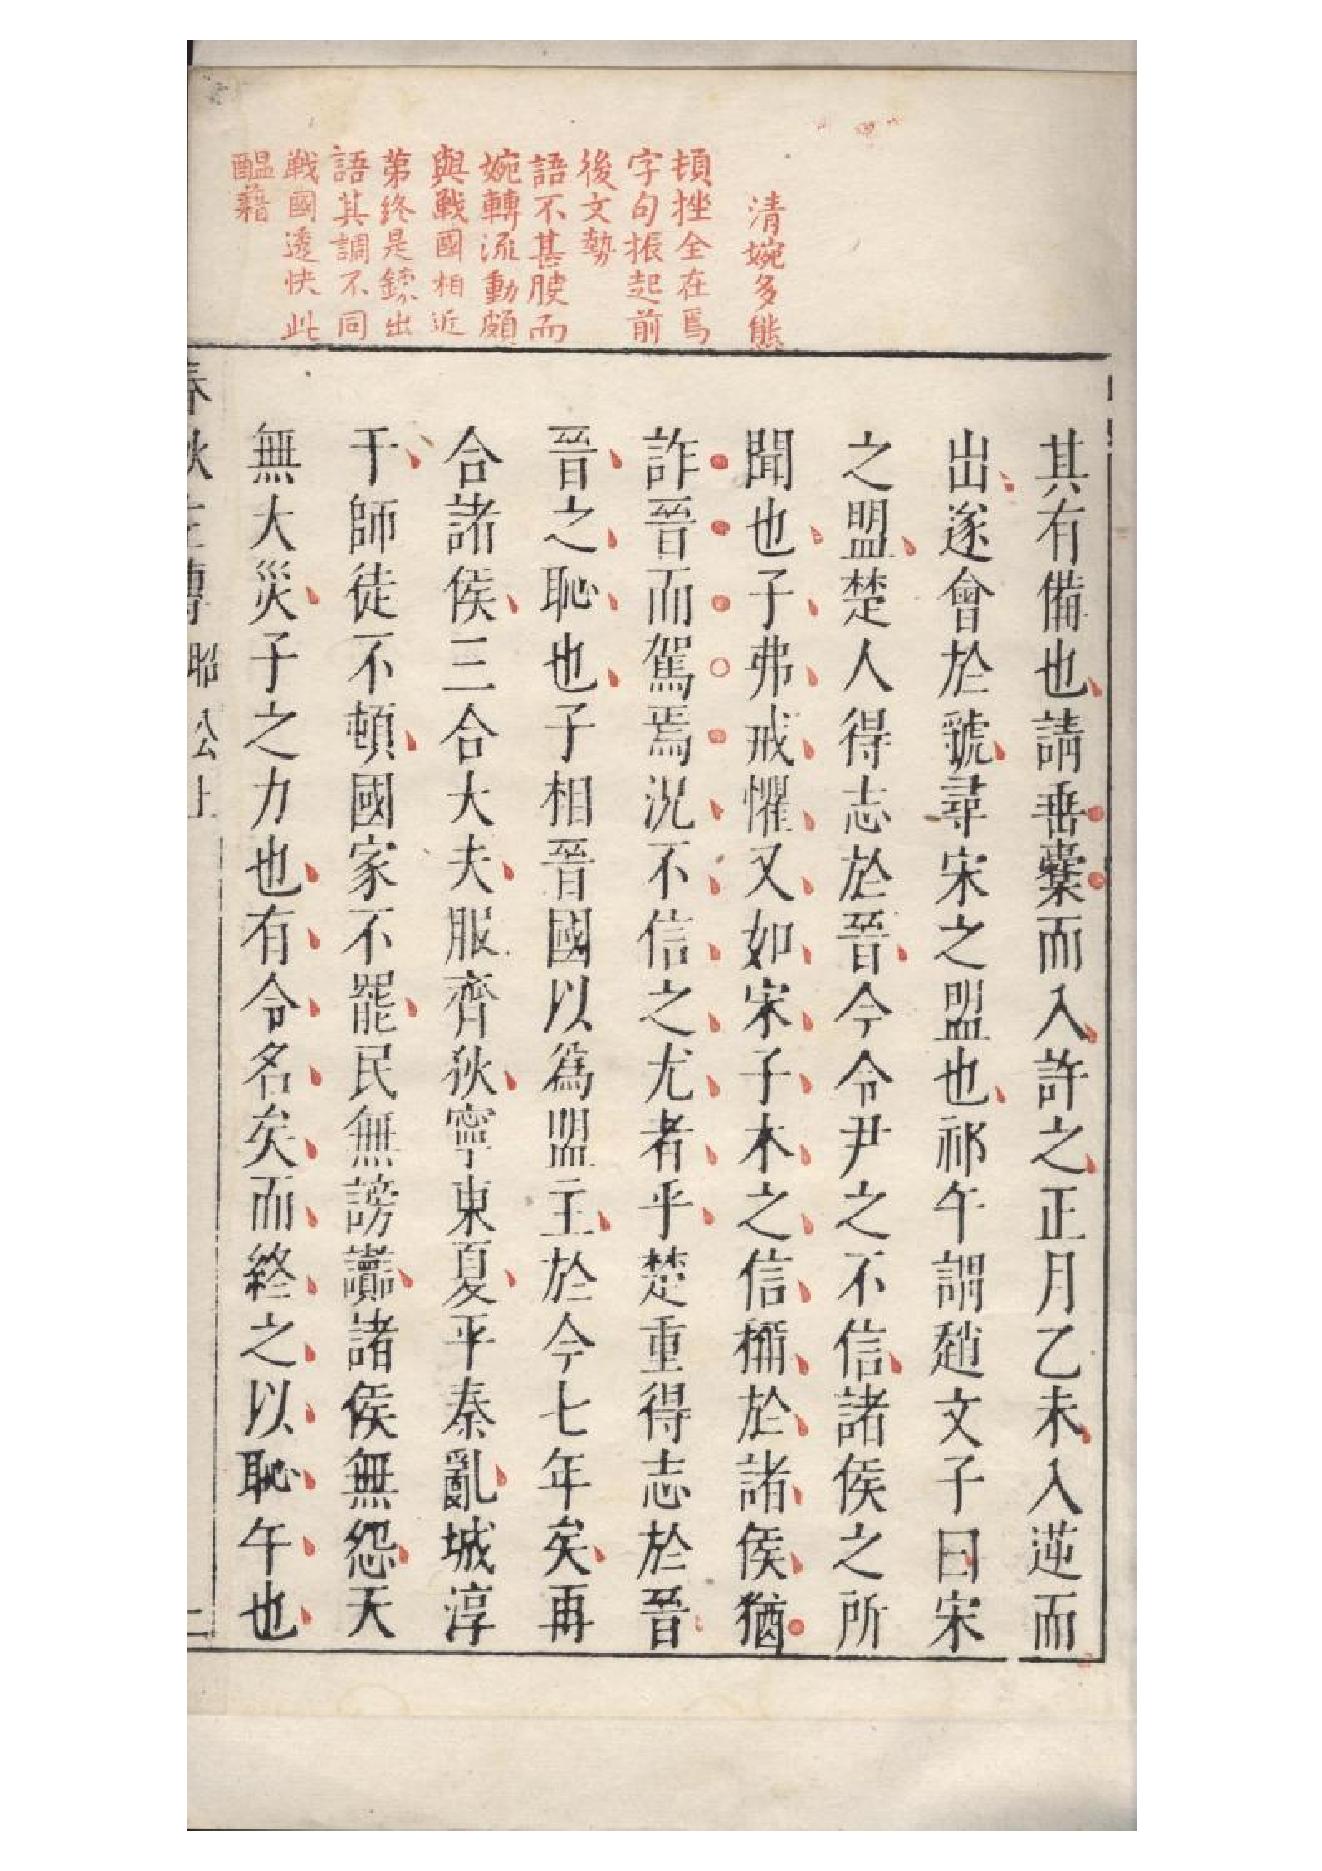 清婉多態
頓挫全在焉
字句振起前
後文勢
語不甚腴而
婉轉流動頗
與戰國相近
第終是鎔出
語其調不同
戰國透快此
醞藉
其有備也請垂櫜而入許之正月乙未入逆而
出遂會於虢尋宋之盟也祁午謂趙文子曰宋
之盟楚人得志於晉今令尹之不信諸侯之所
聞也子弗戒懼又如宋子木之信稱於諸侯猶
詐晉而駕焉況不信之尤者乎楚重得志於晉
晉之恥也子相晉國以為盟主於今七年矣再
合諸侯三合大夫服齊狄寧東夏平秦亂城淳
于師徒不頓國家不罷民無謗讟諸侯無怨天
無大災子之力也有令名矣而終之以恥午也
春秋左傳 昭公上 二